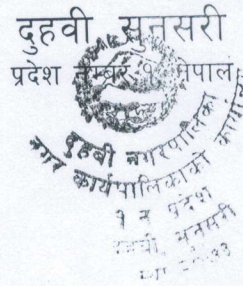 दुहवी सुनसरी
प्रदेश नम्बर १ नेपाल
दुहवी नगरपालिका
नगर कार्यपालिकाको
१ नं प्रदेश
दुहवी, सुनसरी